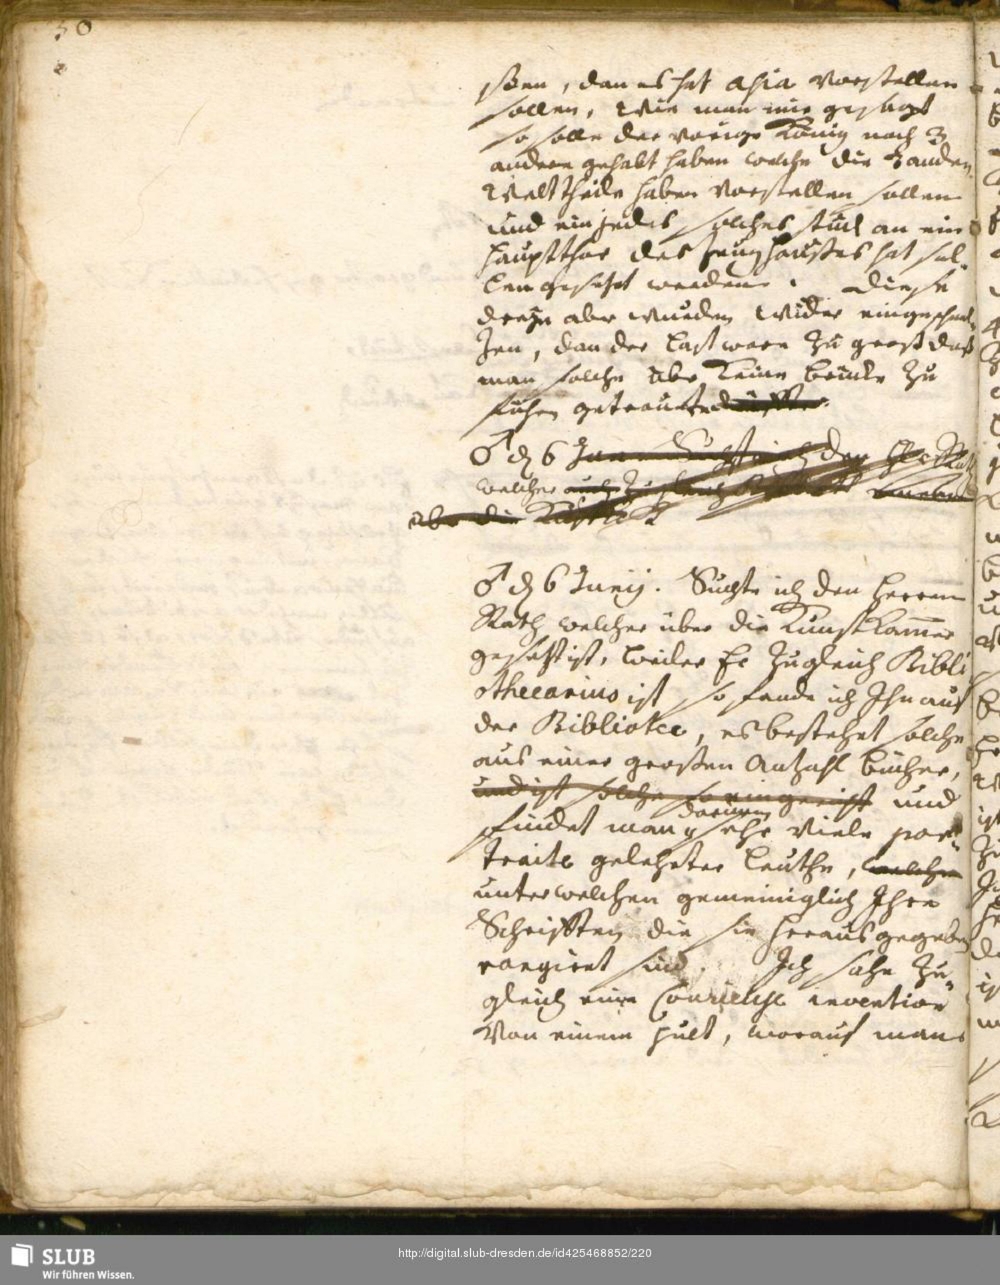 50
ßen, dan es hat Asia vorstellen
sollen, wie man mir gesagt
so solle der vorige König noch 3
andere gehabt haben welche die 3 andere
Welttheile haben vorstellen sollen
und ein jedes solches stück an ein
Hauptthor des Zeughaußes hat sol-
len gesetzt werden. Diese
dreÿe aber wurden wider eingeschmol-
zen, dan der Last ware zu groß daß
man solche über keine brücke zu
führen getrauete
♂ d 6 Junii Suchte ich den Herrn Rath
welcher auch zugleich
über die Kunst
♂ d 6 Junij. Suchte ich den Herrn
Rath welcher über die Kunstkam̄er
gesetzt ist, weilen Er zugleich Bibli
othecarius ist so fande ich Ihn auf
der Bibliotec, es bestehet solche
aus einer großen Anzahl bücher,
und ist solche so eingericht und
findet man darinnen sehr viele por-
traits gelehrter Leuthe, welche
unter welchen gemeiniglich Ihre
Schrifften die sie herausgegeben
rangiret sind. Ich sahe zu-
gleich eine Courieuse invention
von einem Pult, worauf man
SLUB
Wir führen Wissen.
http://digital.slub-dresden.de/id425468852/220